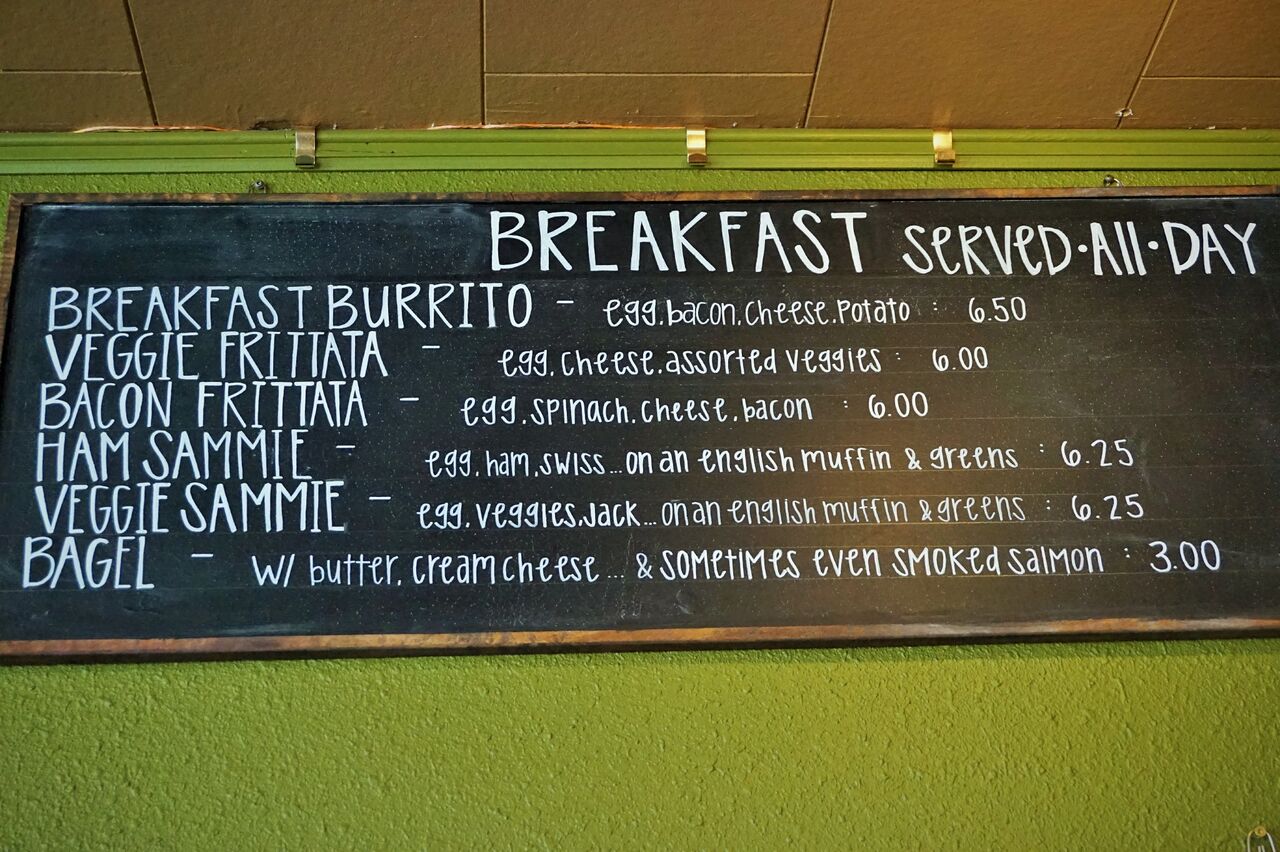 BREAKFAST SERVED·All·DAY
BREAKFAST BURRITO - egg, bacon, cheese, potato : 6.50
VEGGIE FRITTATA - egg, cheese, assorted veggies : 6.00
BACON FRITTATA - egg, spinach, cheese, bacon : 6.00
HAM SAMMIE - egg, ham, swiss... on an english muffin & greens : 6.25
VEGGIE SAMMIE - egg, veggies, jack... on an english muffin & greens : 6.25
BAGEL - w/ butter, cream cheese ... & sometimes even smoked salmon : 3.00